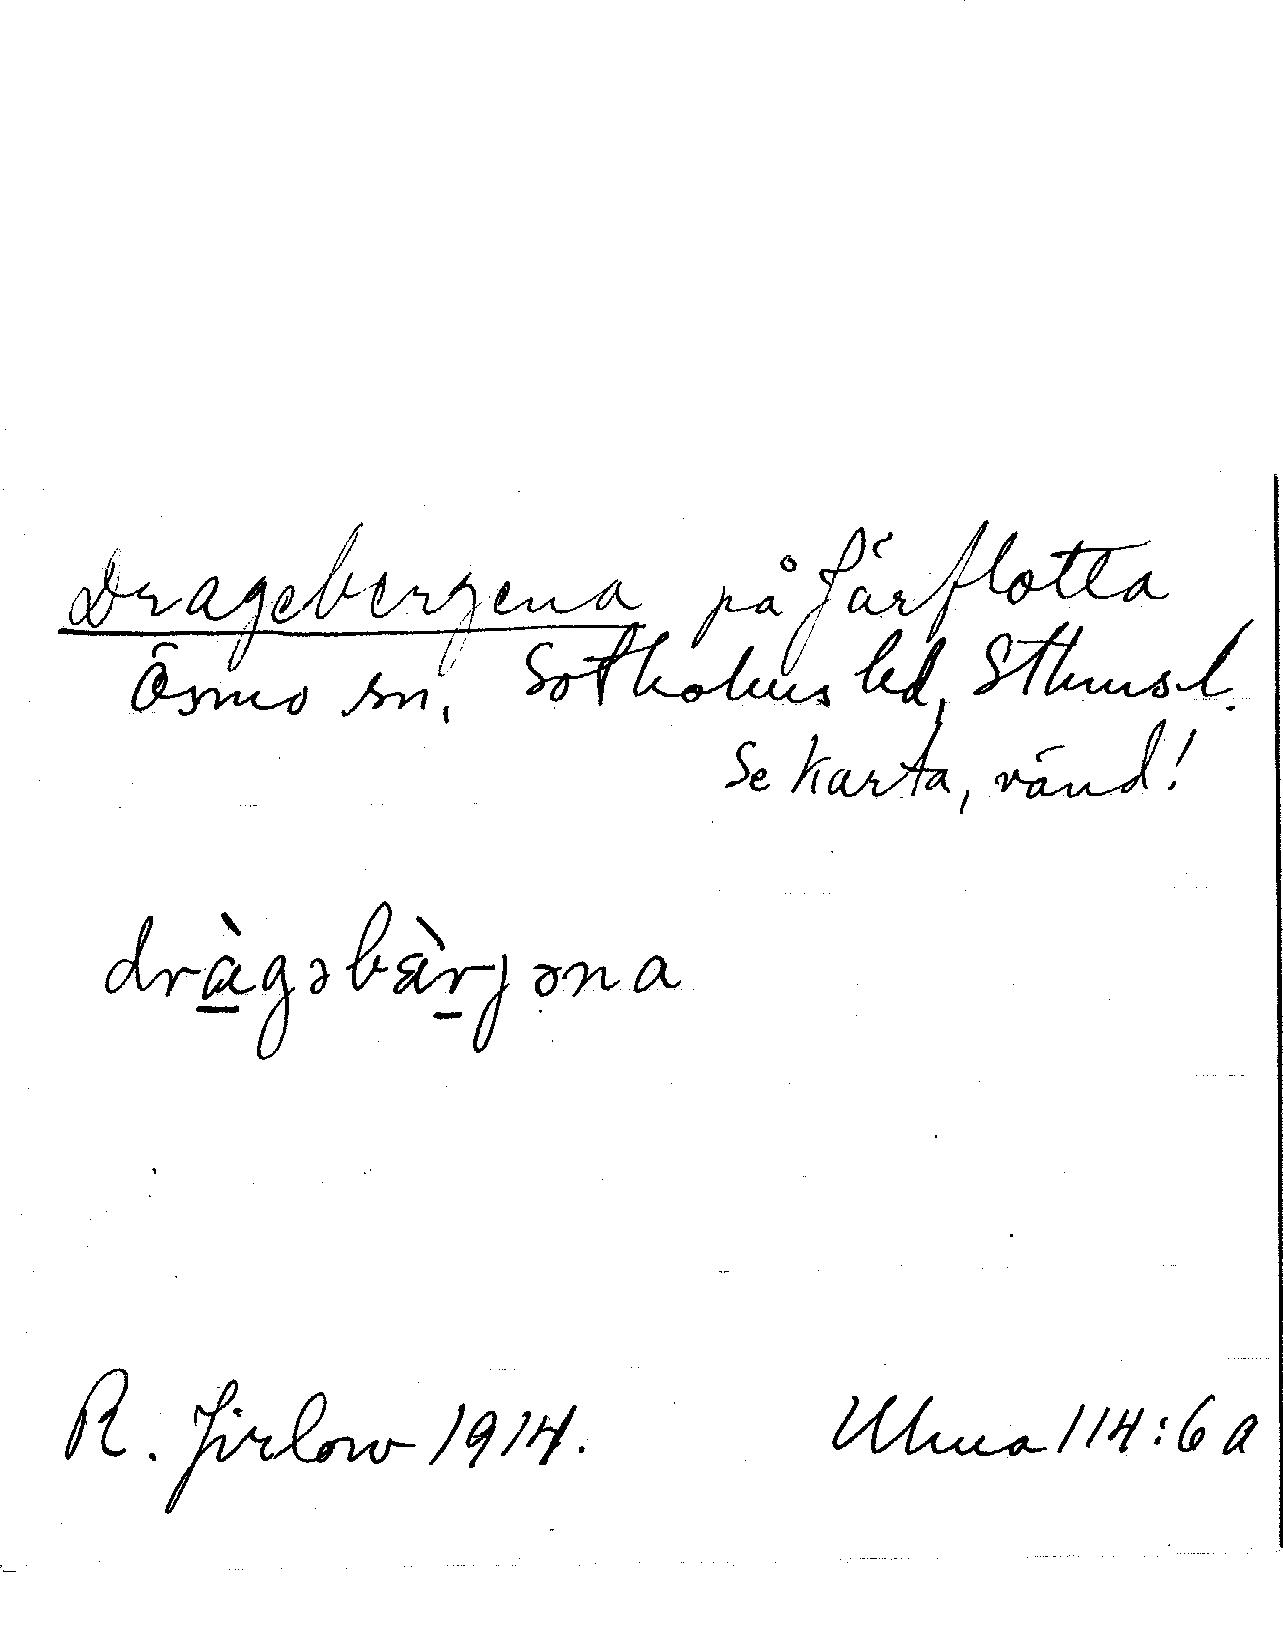 Dragebergena på Järflotta
Ösmo sn, Sotholms hd, Sthms l.
Se karta, vänd!
dràgəbàrjəna
R. Jirlow 1914.
Ulma 114:6a